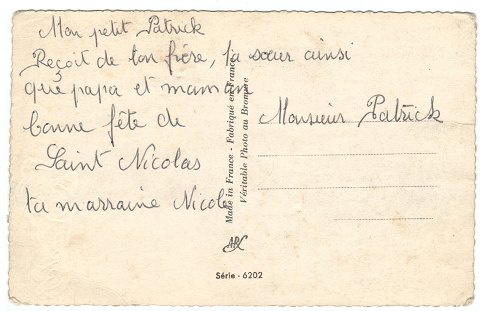 Mon petit Patrick
Reçoit de ton frère, ta sœur ainsi
que papa et maman
bonne fête de
Saint Nicolas
ta marraine Nicole
Made in France - Fabriqué en France
Véritable Photo au Bromure
Monsieur Patrick
Série - 6202